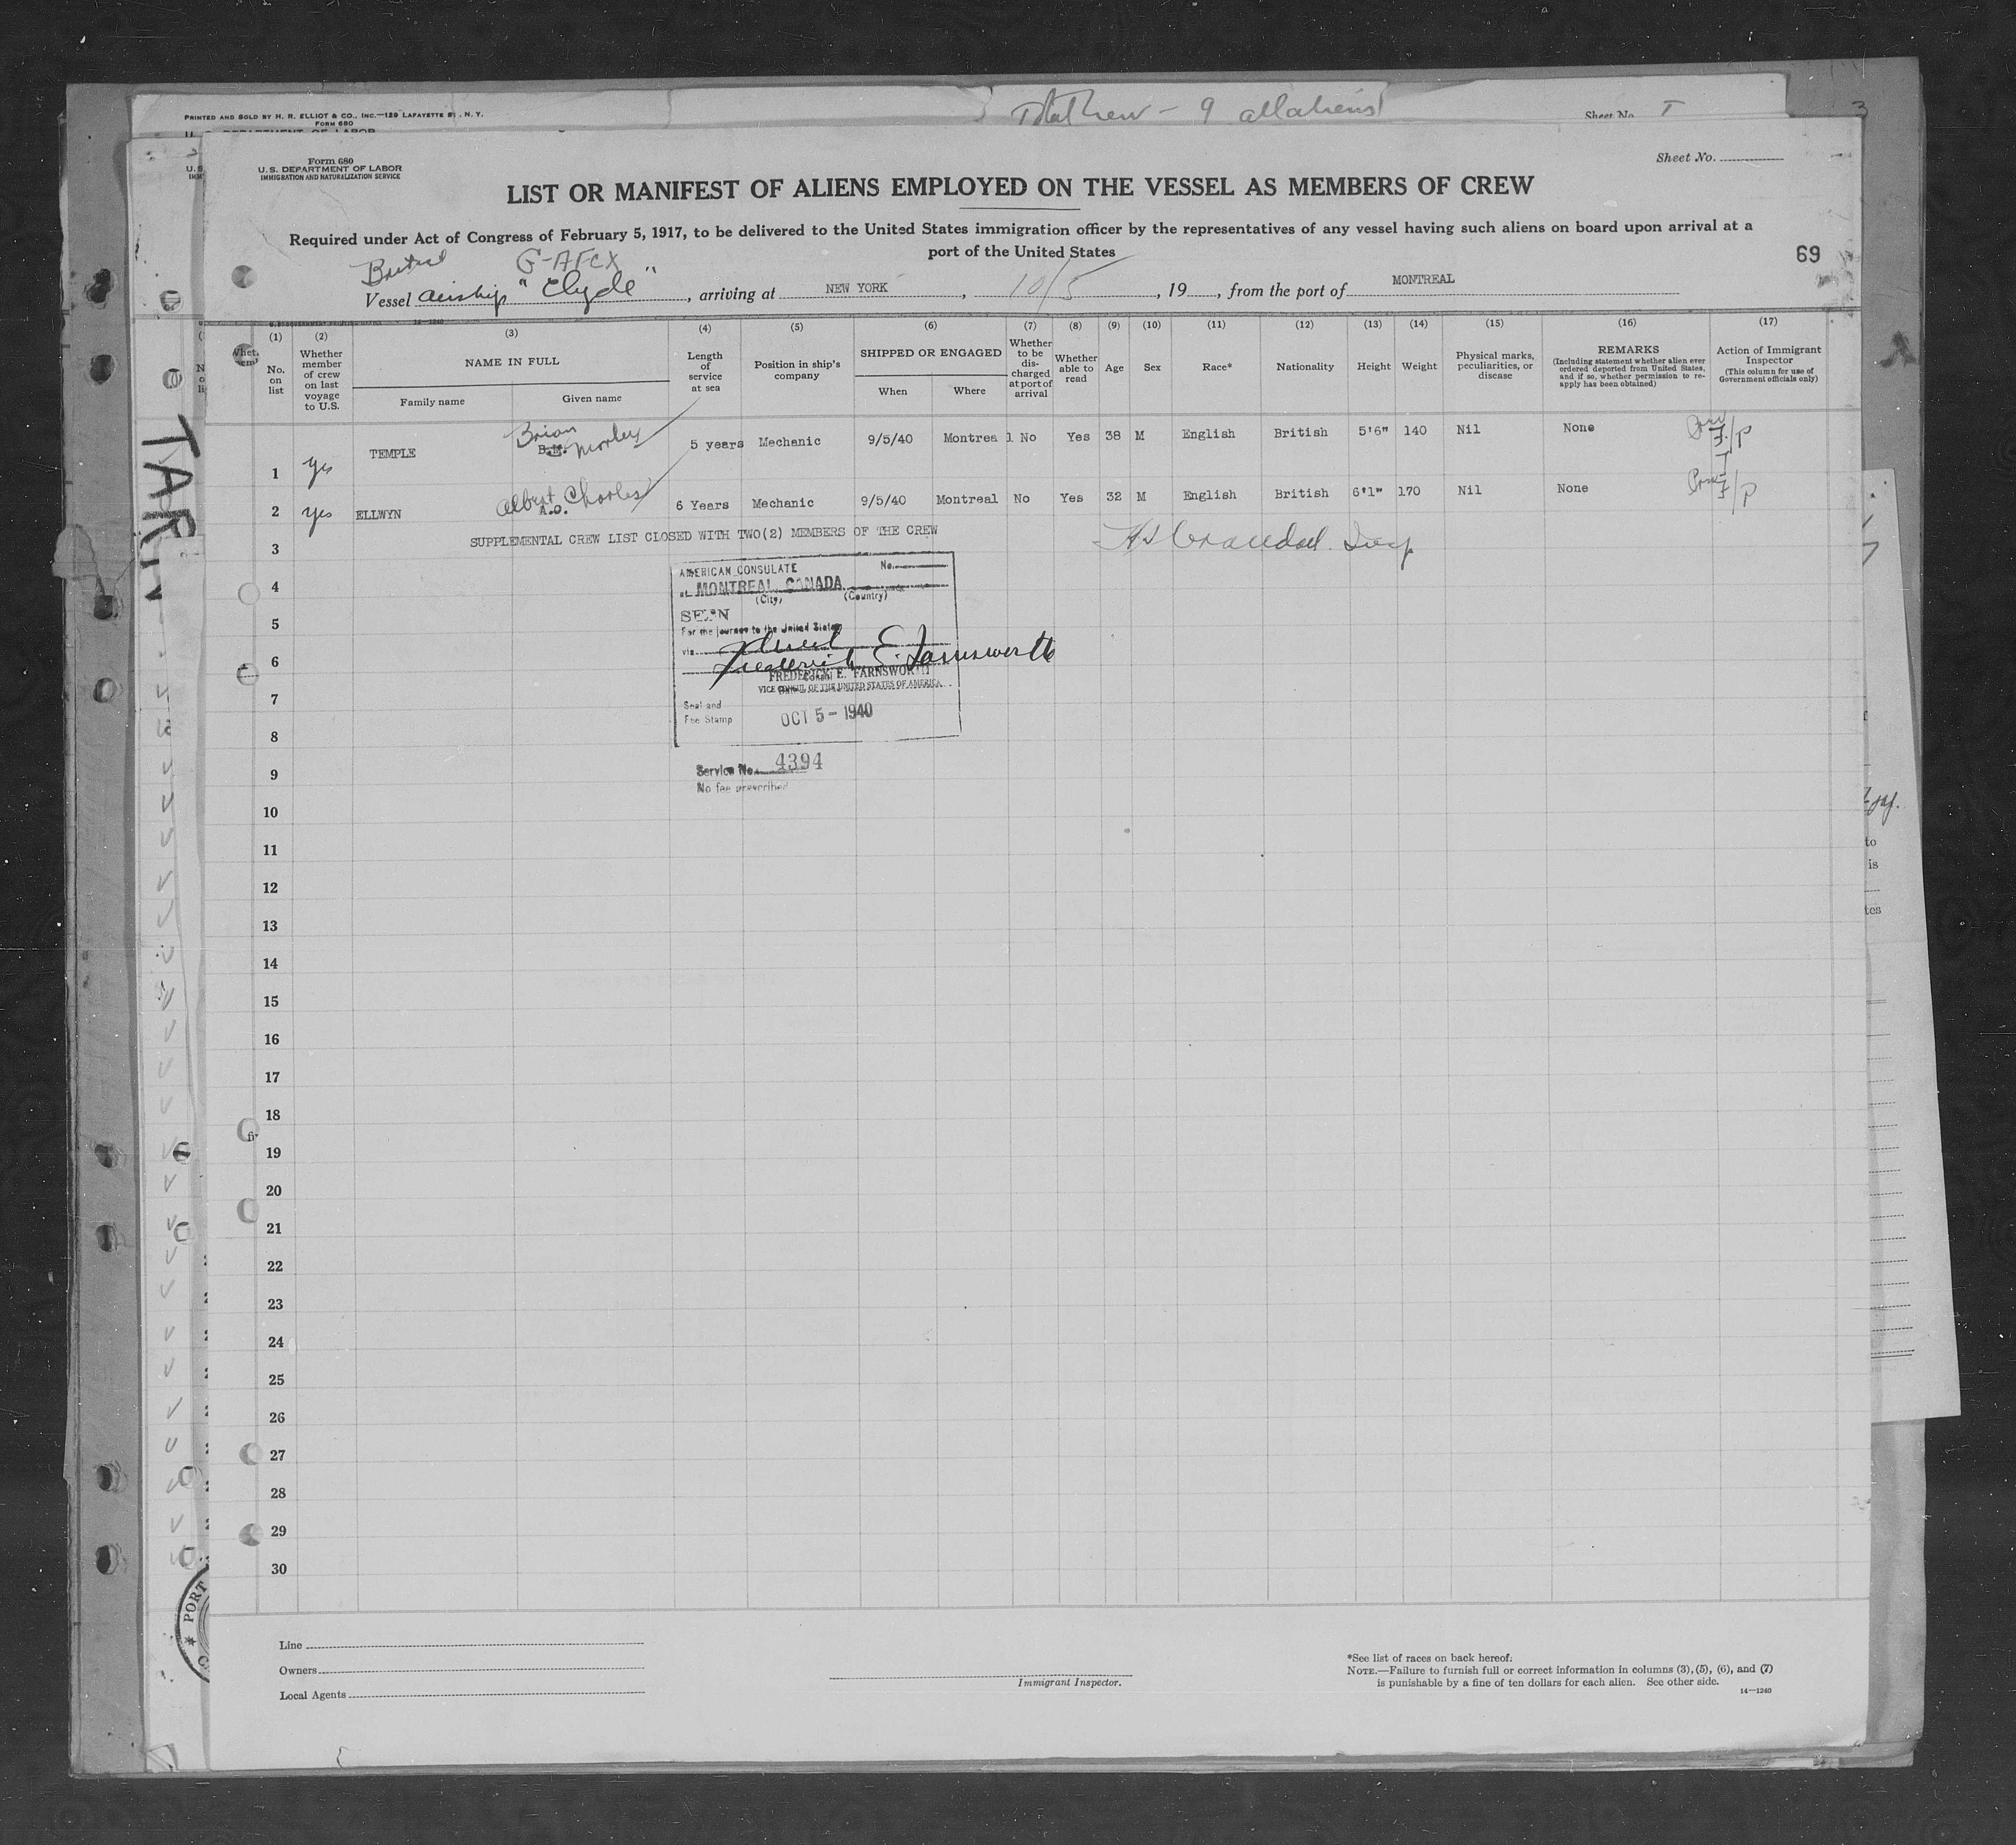 PRINTED AND SOLD BY H. R. ELLIOT & CO., INC.—129 LAFAYETTE ST., N. Y.
FORM 680
Sheet No.
Form 680
U. S. DEPARTMENT OF LABOR
IMMIGRATION AND NATURALIZATION SERVICE
Sheet No.
LIST OR MANIFEST OF ALIENS EMPLOYED ON THE VESSEL AS MEMBERS OF CREW
Required under Act of Congress of February 5, 1917, to be delivered to the United States immigration officer by the representatives of any vessel having such aliens on board upon arrival at a
port of the United States
69
British G-AFCX
Vessel airship "Clyde", arriving at NEW YORK, 10/5, 19, from the port of MONTREAL
(1) (2) (3) (4) (5) (6) (7) (8) (9) (10) (11) (12) (13) (14) (15) (16) (17)
No. on list
Whether member of crew on last voyage to U.S.
NAME IN FULL
Family name
Given name
Length of service at sea
Position in ship's company
SHIPPED OR ENGAGED
When
Where
Whether to be discharged at port of arrival
Whether able to read
Age
Sex
Race*
Nationality
Height
Weight
Physical marks, peculiarities, or disease
REMARKS
(Including statement whether alien ever ordered deported from United States, and if so, whether permission to re-apply has been obtained)
Action of Immigrant Inspector
(This column for use of Government officials only)
1 Yes TEMPLE B.M. Brian Morley 5 years Mechanic 9/5/40 Montreal No Yes 38 M English British 5'6" 140 Nil None
2 Yes ELLWYN A.C. Albert Charles 6 Years Mechanic 9/5/40 Montreal No Yes 32 M English British 6'1" 170 Nil None
3 SUPPLEMENTAL CREW LIST CLOSED WITH TWO(2) MEMBERS OF THE CREW
AMERICAN CONSULATE No.
at MONTREAL, CANADA
(City) (Country)
SEEN
For the journey to the United States
via
Frederick E. Farnsworth
FREDERICK E. FARNSWORTH
VICE CONSUL OF THE UNITED STATES OF AMERICA
Seal and
Fee Stamp
OCT 5 - 1940
Service No. 4394
No fee prescribed
4
5
6
7
8
9
10
11
12
13
14
15
16
17
18
19
20
21
22
23
24
25
26
27
28
29
30
Line
Owners
Local Agents
Immigrant Inspector.
*See list of races on back hereof.
NOTE.—Failure to furnish full or correct information in columns (3), (5), (6), and (7)
is punishable by a fine of ten dollars for each alien. See other side.
14—1240
PORT